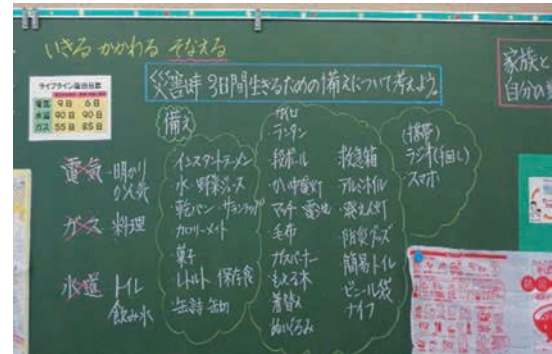 いきる かかわる そなえる
災害時 3日間生きるための備えについて考えよう。
家族と
自分の
ライフライン復旧日数
電気 9日 6日
水道 90日 90日
ガス 55日 85日
電気・明かり
ガス 料理
水道 トイレ
飲み水
備え
インスタントラーメン
水・野菜ジュース
乾パン・サランラップ
カロリーメイト
菓子
レトルト 保存食
缶詰・缶切
ランタン
段ボール
かい中電灯
マッチ・電池
毛布
ガスバーナー
もえる木
着替え
ぬいぐるみ
救急箱
アルミホイル
防災グッズ
簡易トイレ
ビニール袋
ナイフ
(携帯)
ラジオ(手回し)
スマホ